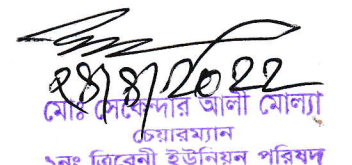 ২৪/৪/2022
মোঃ সেকেন্দার আলী মোল্যা
চেয়ারম্যান
১নং ত্রিবেনী ইউনিয়ন পরিষদ